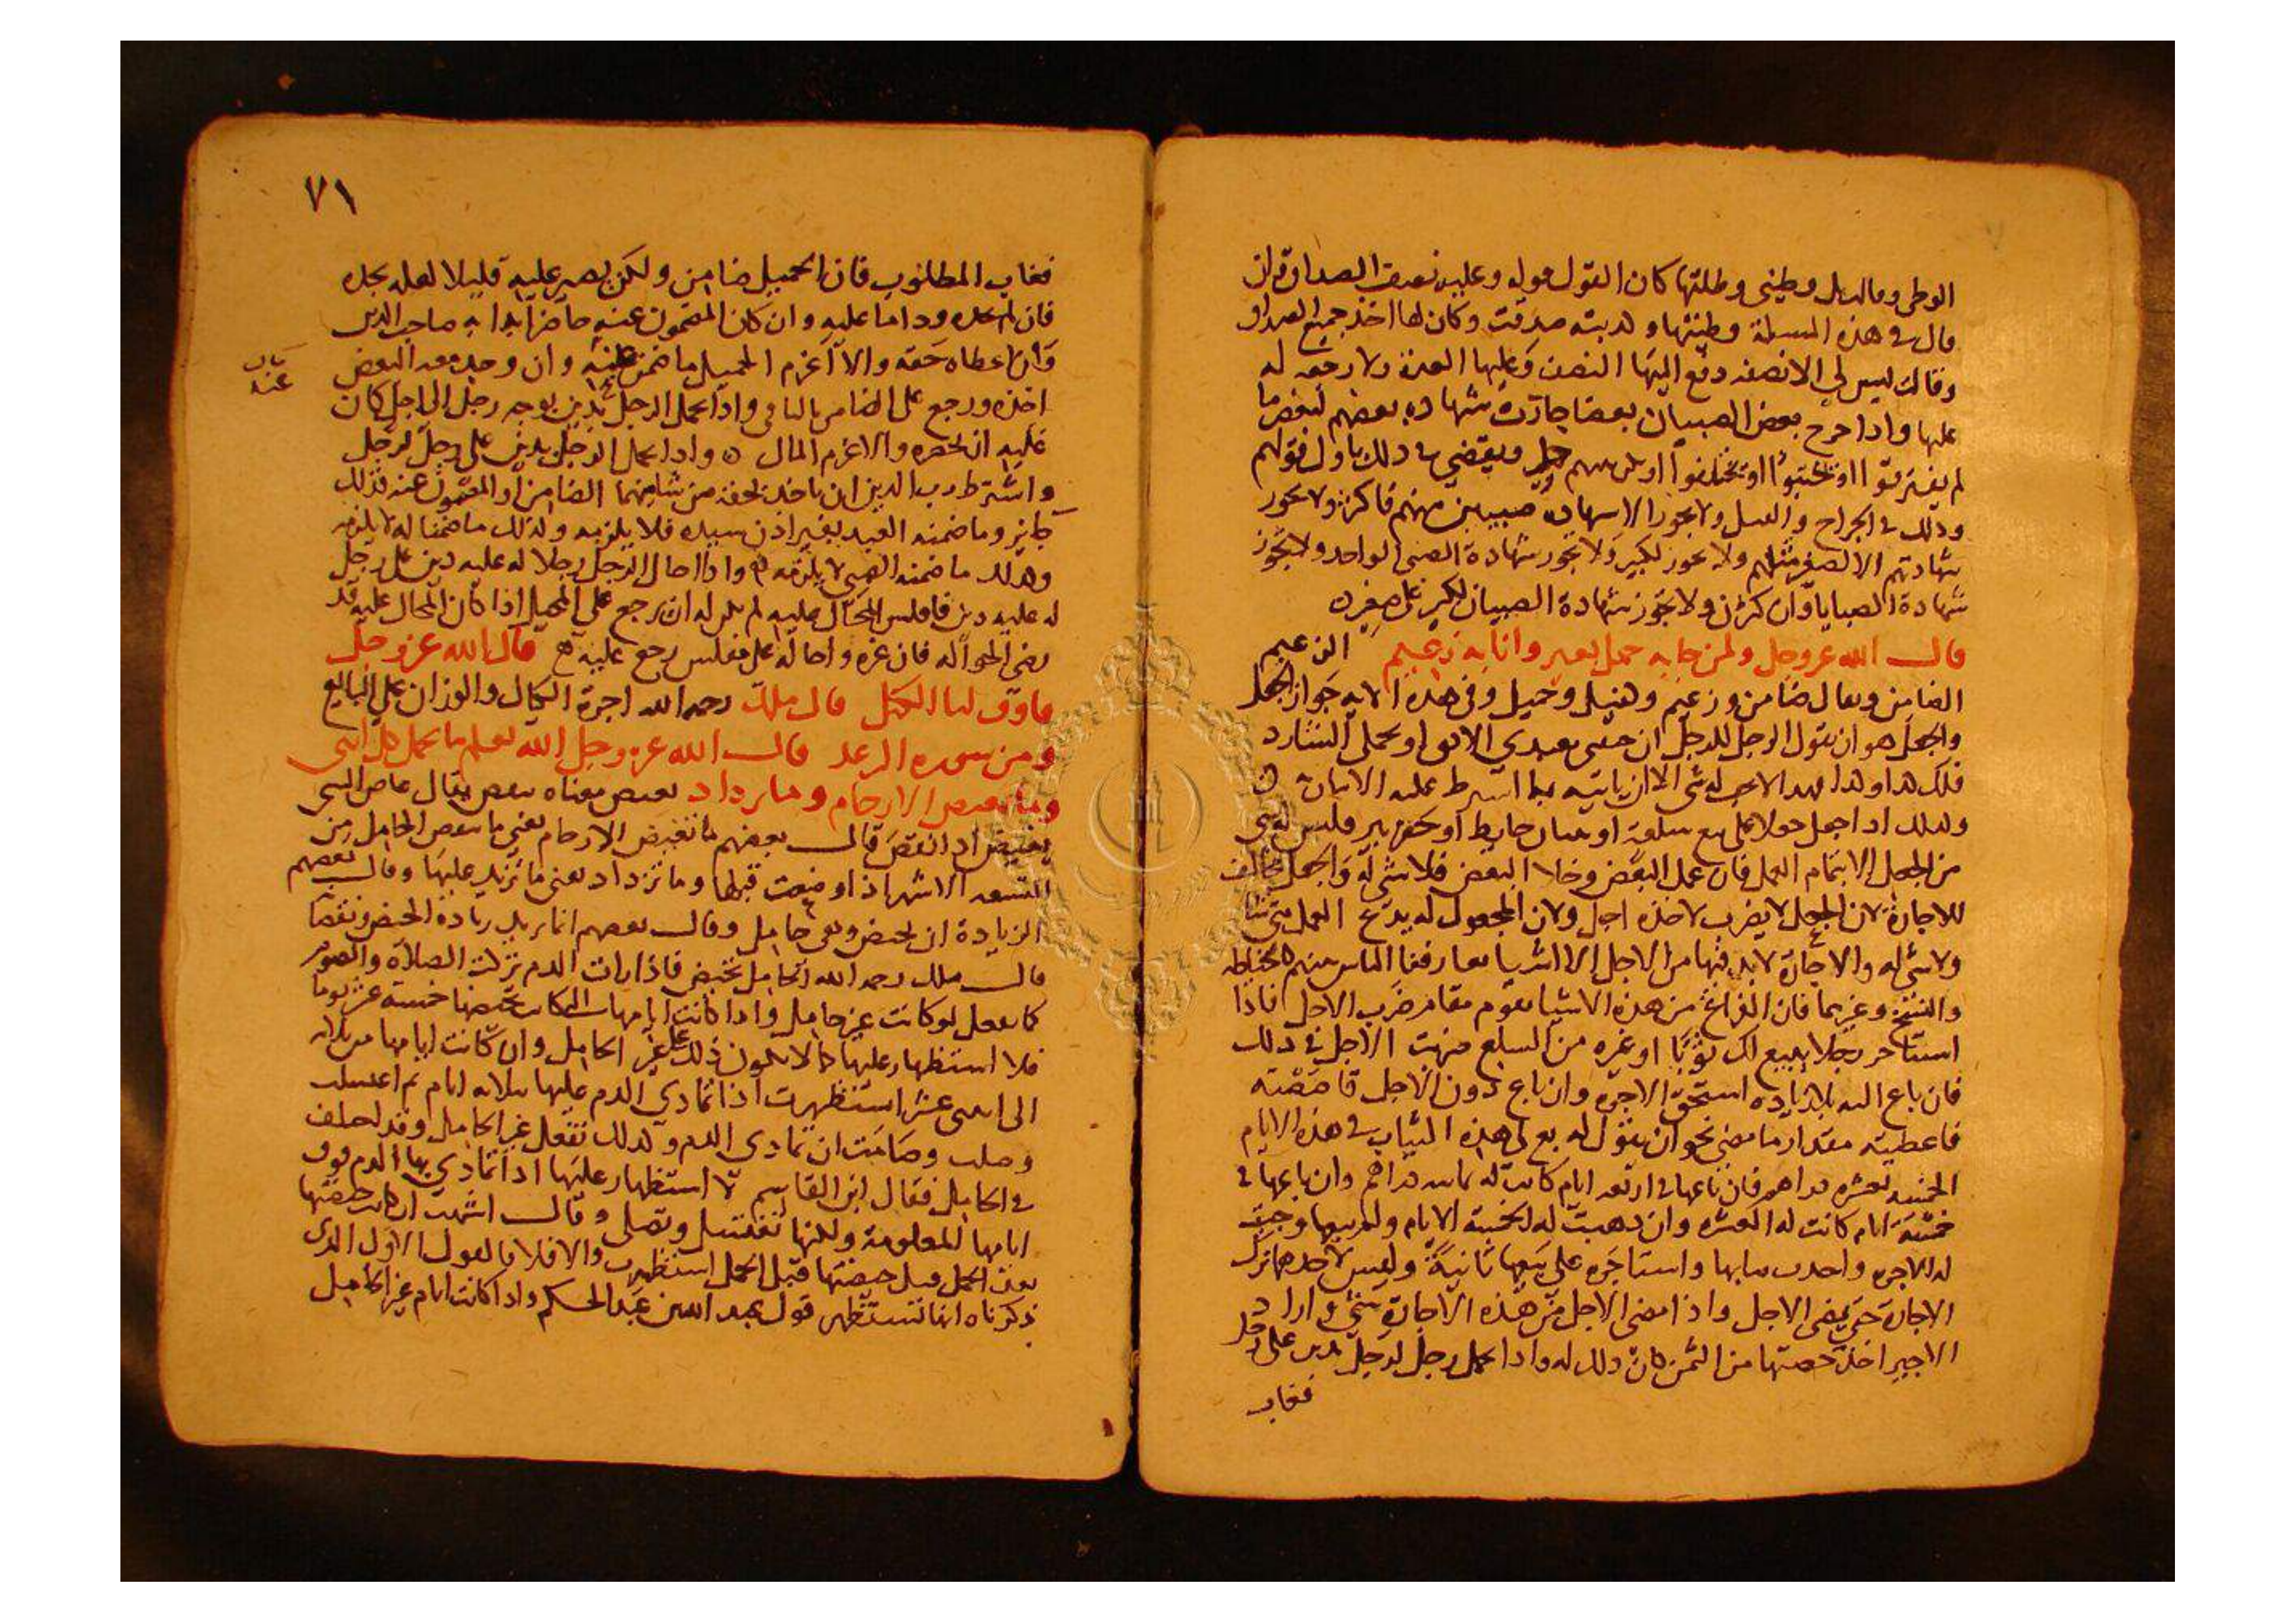 الوطى وقالت بل وطيني وطلقتها كان القول قوله وعليه نصف الصداق قال
قال في هذه المسئلة وطيتها وكذبته صدقت وكان لها اخذ جميع الصداق
وقالت ليس لي الا نصفه دفع اليها النصف وعليها العدة ولا رجعة له
عليها واذا جرح بعض الصبيان بعضا جازت شهادة بعضهم لبعض ما
لم يفترقوا او يختبوا او يختلفوا او يدخل بينهم كبير ويقضي في ذلك باول قولهم
وذلك في الجراح والقتل ولا تجوز الا شهادة صبيين منهم فاكثر ولا تجوز
شهادتهم الا لصغير مثلهم ولا تجوز لكبير ولا تجوز شهادة الصبي الواحد ولا تجوز
شهادة الصبايا وان كثرن ولا تجوز شهادة الصبيان لكبير على صغير
قال الله عز وجل ولمن جا به حمل بعير وانا به زعيم الزعيم
الضامن ويقال ضامن وزعيم وقبيل وحميل وفي هذه الاية جواز الجعل
والجعل هو ان يقول الرجل للرجل ان جئتني بعبدي الابق او بجملي الشارد
فلك كذا وكذا فهذا لا يجب له شي الا ان ياتيه بما اشترط عليه الاتيان به
وكذلك اذا جعل جعلا على بيع سلعة او بنيان حايط او حفر بير فليس له شي
من الجعل الا بتمام العمل فان عمل البعض وخلا البعض فلا شي له والجعل مخالف
للاجارة لان الجعل لا يضرب لاخذه اجل ولان المجعول له يدع العمل متى شا
ولا شي له والاجارة لا بد فيها من الاجل الا اشيا تعارفها الناس بينهم كالخياطة
والنسخ وغيرهما فان الفراغ من هذه الاشيا يقوم مقام ضرب الاجل فاذا
استاجر رجلا يبيع لك ثوبا او غيره من السلع ضربت الاجل في ذلك
فان باع الى الاجل استحق الاجرة وان باع دون الاجل قاصصته
فاعطيته مقدار ما مضى نحو ان يقول له بع لي هذه الثياب في هذه الايام
الخمسة بعشرة دراهم فان باعها في اربعة ايام كانت له ثمانية دراهم وان باعها في
خمسة ايام كانت له العشرة وان ذهبت له الخمسة الايام ولم يبيعها وجبت
له الاجرة واخذت ثيابها واستاجره على بيعها ثانية وليس لاحدهما ترك
الاجارة حتى يمضي الاجل واذا مضى الاجل من هذه الاجارة شي واراد
الاجير اخذ حصتها من الثمن كان ذلك له واذا تحمل رجل لرجل بدين على رجل
فغاب
٧١
فغاب المطلوب فان الحميل ضامن ولكن يصبر عليه قليلا لعله يجده
فان لم يجده ودا ما عليه وان كان المضمون عنه حاضرا بدا به صاحب الدين
فان اعطاه حقه والا اغرم الحميل ما ضمن عنه وان وجد معه البعض
اخذه ورجع على الضامن بالباقي واذا تحمل الرجل بدين بوجه رجل الى اجل كان
عليه ان يحضره والا غرم المال واذا تحمل الرجل بدين على رجل لرجل
واشترط رب الدين ان ياخذ بحقه من شا منهما الضامن او المضمون عنه فذلك
جايز وما ضمنه العبد بغير اذن سيده فلا يلزمه وكذلك ما ضمنا له لا يلزمه
وكذلك ما ضمنه الصبي لا يلزمه واذا احال الرجل رجلا له عليه دين على رجل
له عليه دين فافلس المحال عليه لم يكن له ان يرجع على المحيل اذا كان المحال عليه قد
رضي الحوالة فان غره واحاله على مفلس رجع عليه قال الله عز وجل
فاوف لنا الكيل قال ملك رحمه الله اجرة الكيال والوزان على البايع
ومن سورة الرعد قال الله عز وجل الله يعلم ما تحمل كل انثى
وما تغيض الارحام وما تزداد تغيض معناه تنقص يقال غاض الشي
يغيض اذا نقص قال بعضهم ما تغيض الارحام يعني ما تنقص الحامل من
التسعة الاشهر اذا وضعت قبلها وما تزداد يعني ما تزيد عليها وقال بعضهم
الزيادة ان تحيض وهي حامل وقال بعضهم انما يريد زيادة الحيض ونقصانه
قال ملك رحمه الله الحامل تحيض فاذا رات الدم تركت الصلاة والصوم
كما تفعل لو كانت غير حامل واذا كانت ايامها التي كانت تحيضها خمسة عشر يوما
فلا استظهار عليها كما لا يكون ذلك على غير الحامل وان كانت ايامها من ثلاثة
الى اثنى عشر استظهرت اذا تمادى الدم عليها بثلاثة ايام ثم اغتسلت
وصلت وصامت ان تمادى الدم وكذلك تفعل غير الحامل وقد اختلف
في الحامل فقال ابن القاسم لا استظهار عليها اذا تمادى بها الدم فوق
ايامها المعلومة ولكنها تغتسل وتصلي وقال اشهب ان كانت حيضتها
بعد الحمل مثل حيضتها قبل الحمل استظهرت والا فلا فالقول الاول الذي
ذكرناه انها تستظهر قول عبد الله بن عبد الحكم واذا كانت ايام غير الحامل
بيان
عنه